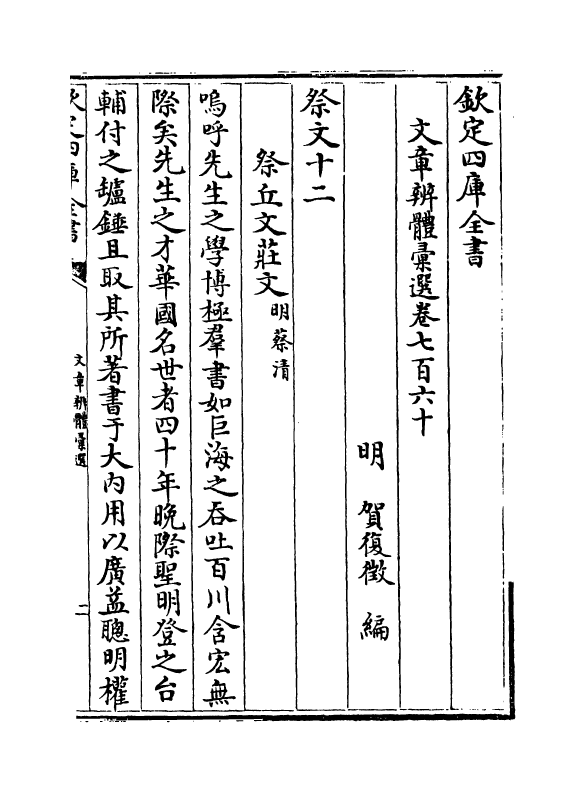 欽定四庫全書
文章辨體彙選卷七百六十
明　賀復徵　編
祭文十二
祭丘文莊文明蔡清
嗚呼先生之學博極羣書如巨海之吞吐百川含宏無
際矣先生之才華國名世者四十年晩際聖明登之台
輔付之罏錘且取其所著書于大内用以廣益聰明權
欽定四庫全書
文章辨體彙選
二